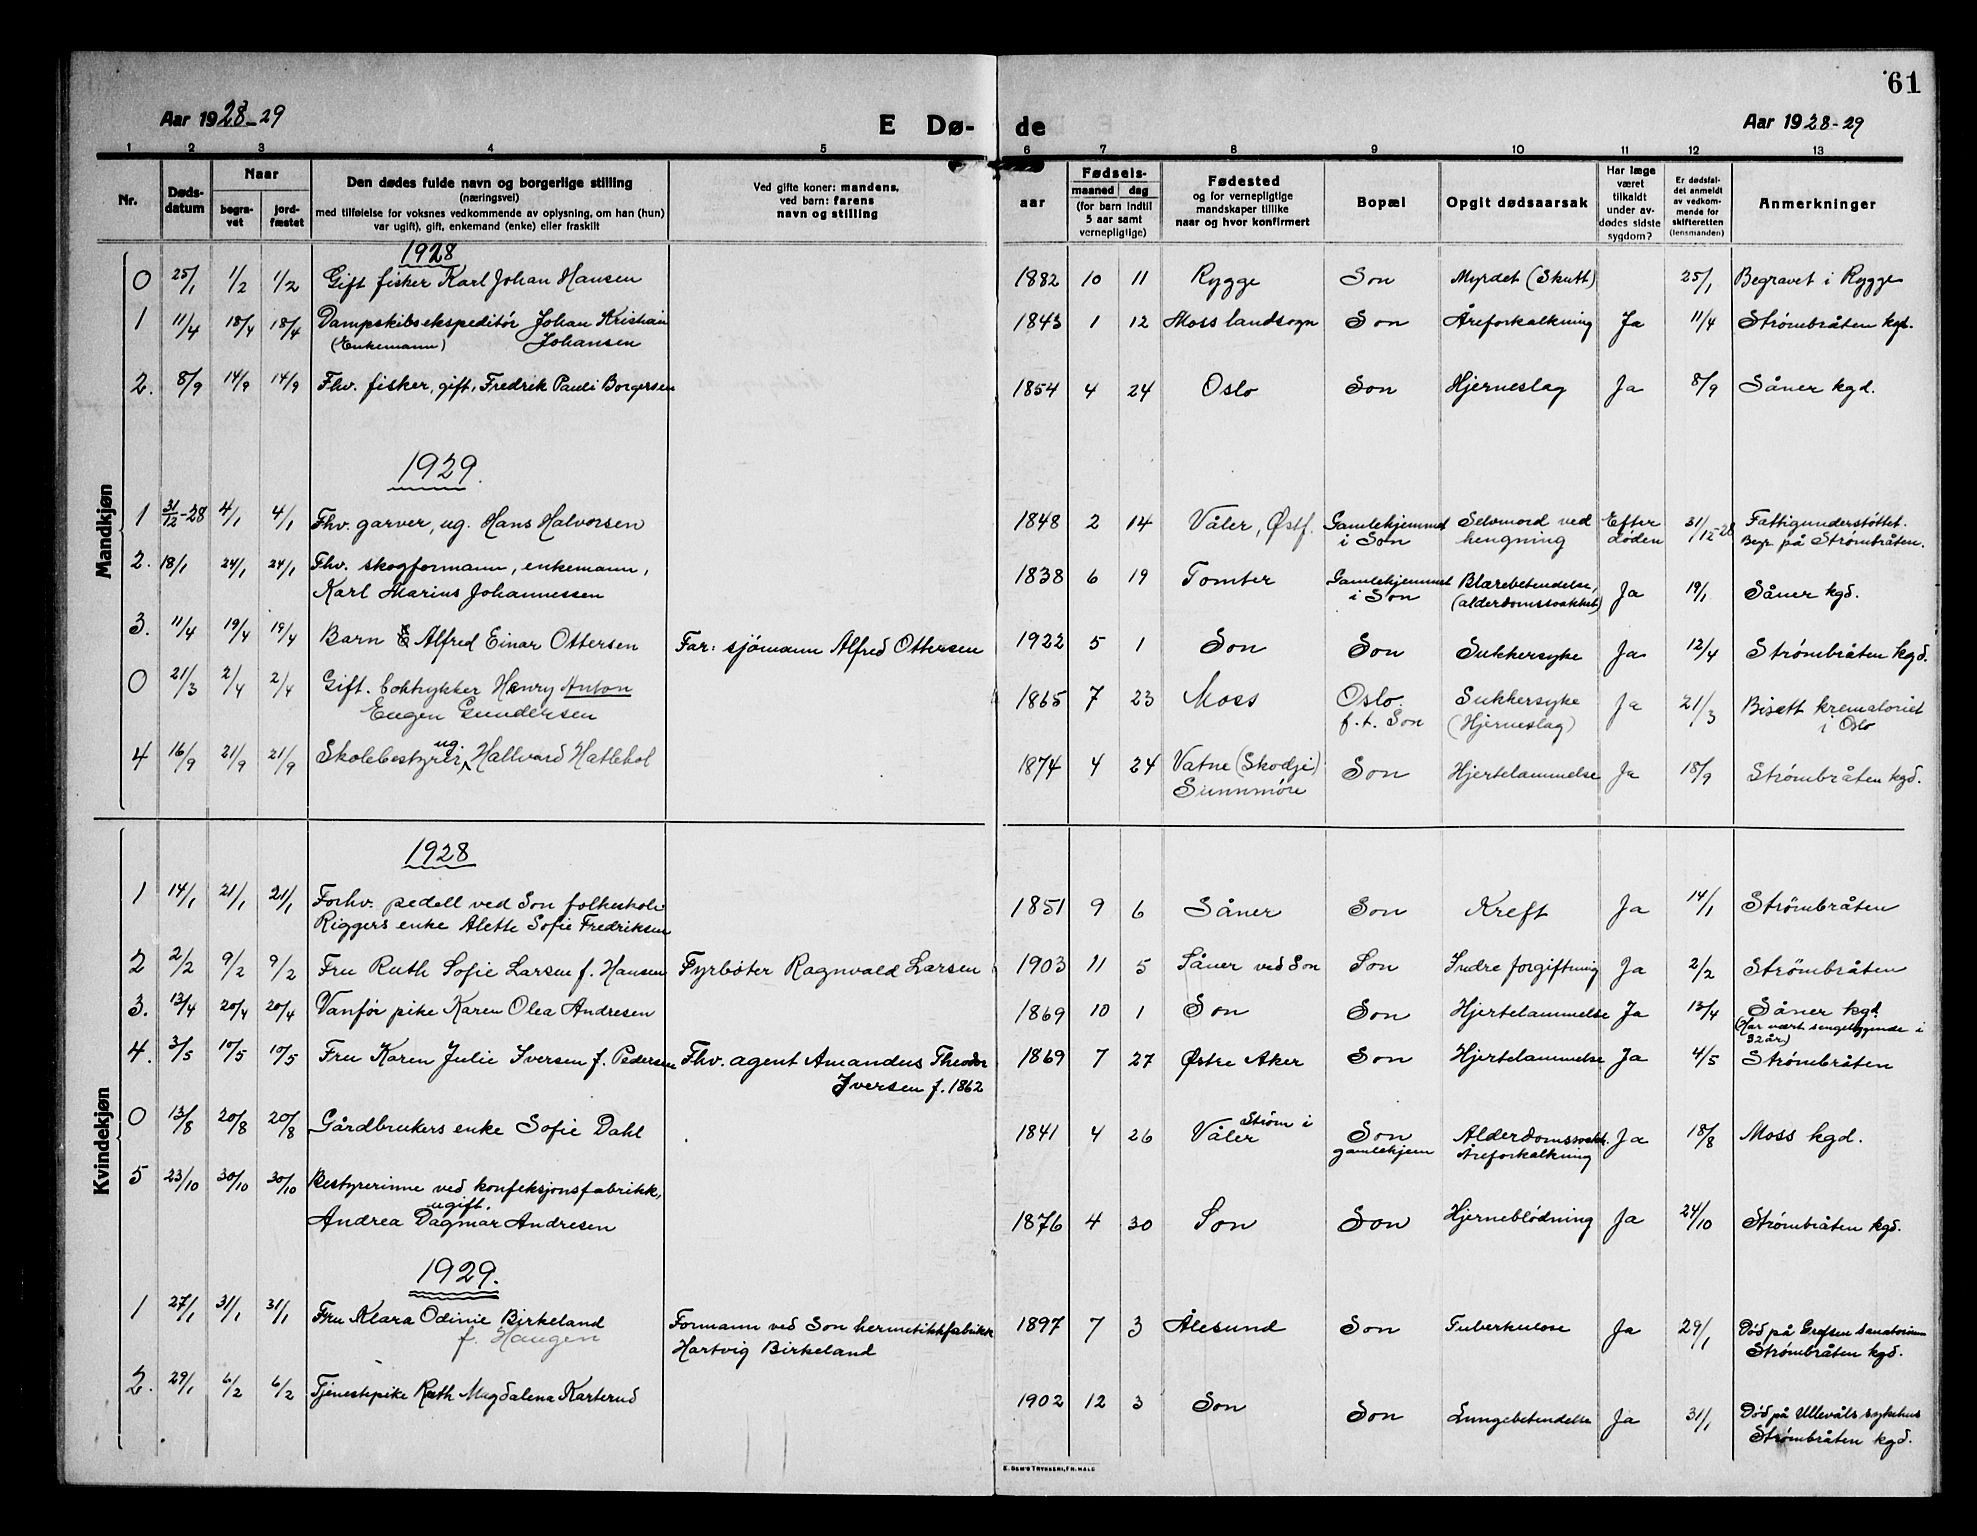 61
Aar 1928-29
E Dø-
de
Aar 1928-29
1 2 3 4 5 6 7 8 9 10 11 12 13
Nr.
Døds-
datum
Naar
begra-
vet
jord-
fæstet
Den dødes fulde navn og borgerlige stilling
(næringsvei)
med tilføielse for voksnes vedkommende av oplysning, om han (hun)
var ugift), gift, enkemand (enke) eller fraskilt
Ved gifte koner: mandens,
ved barn: farens
navn og stilling
Fødsels-
aar
maaned
dag
(for barn indtil
5 aar samt
vernepligtige)
Fødested
og for vernepligtige
mandskaper tillike
naar og hvor konfirmert
Bopæl
Opgit dødsaarsak
Har læge
været
tilkaldt
under av-
dødes sidste
sygdom?
Er dødsfal-
det anmeldt
av vedkom-
mende for
skifteretten
(lensmanden)
Anmerkninger
Mandkjøn
1928
0 25/1 1/2 1/2 Gift fisker Karl Johan Hansen 1882 10 11 Rygge Son Myrdet (Skutt) 25/1 Begravet i Rygge
1 11/4 18/4 18/4 Dampskibsekspeditör Johan Kristian 1843 1 12 Moss landsogn Son Åreforkalkning Ja 11/4 Strömbråten kgd.
(Enkemann) Johansen
2. 8/9 14/9 14/9 Fhv. fisker, gift, Fredrik Pauli Borgersen 1854 4 24 Oslo Son Hjerneslag Ja 8/9 Såner kgd.
1929.
1 31/12-28 4/1 4/1 Fhv. garver, ug. Hans Halvorsen 1848 2 14 Våler, Østf. Gamlehjemmet Selvmord ved Efter 31/12-28 Fattigunderstöttet.
i Son hengning döden Begr. på Strömbråten.
2. 18/1 24/1 24/1 Fhv. skogformann, enkemann, 1838 6 19 Tomter Gamlehjemmet Blærebetendelse, Ja 19/1 Såner kgd.
Karl Marius Johannessen i Son (alderdomssvakhet)
3. 11/4 19/4 19/4 Barn Alfred Einar Ottersen Far: sjömann Alfred Ottersen 1922 5 1 Son Son Sukkersyke Ja 12/4 Strömbråten kgd.
0 21/3 2/4 2/4 Gift. boktrykker Henry Anton 1865 7 23 Moss Oslo. Sukkersyke Ja 21/3 Bisatt krematoriet
Eugen Gundersen f.t. Son (Hjerneslag) i Oslo
4 16/9 21/9 21/9 Skolebestyrer, ug. Hallvard Hatlehol 1874 4 24 Vatne (Skodje) Son Hjertelammelse Ja 18/9 Strömbråten kgd.
Sunnmöre
Kvindekjøn
1928
1 14/1 21/1 21/1 Forhv. pedell ved Son folkeskole 1851 9 6 Såner Son Kreft Ja 14/1 Strömbråten
Riggers enke Alette Sofie Fredriksen
2 2/2 9/2 9/2 Fru Ruth Sofie Larsen f. Hansen Fyrböter Ragnvald Larsen 1903 11 5 Såner ved Son Son Indre forgiftning Ja 2/2 Strömbråten
3. 13/4 20/4 20/4 Vanför pike Karen Olea Andresen 1869 10 1 Son Son Hjertelammelse Ja 13/4 Såner kgd.
(Har vært sengeliggende i
32 år.)
4. 3/5 10/5 10/5 Fru Karen Julie Iversen f. Pedersen Fhv. agent Amandus Theodor 1869 7 27 Østre Aker Son Hjertelammelse Ja 4/5 Strömbråten
Iversen f. 1862
0 13/8 20/8 20/8 Gårdbrukers enke Sofie Dahl 1841 4 26 Ström i Våler Son Alderdomssvakh. Ja 18/8 Moss kgd.
gamlehjem Åreforkalkning
5 23/10 30/10 30/10 Bestyrerinne ved konfeksjonsfabrikk,
ugift.
Andrea Dagmar Andresen 1876 4 30 Son Son Hjerneblödning Ja 24/10 Strömbråten kgd.
1929.
1 27/1 31/1 31/1 Fru Klara Odinie Birkeland Formann ved Son hermetikkfabrikk 1897 7 3 Ålesund Son Tuberkulose Ja 29/1 Död på Grefsen sanatorium
f. Haugen Hartvig Birkeland Strömbråten kgd.
2. 29/1 6/2 6/2 Tjenestepike Ruth Magdalena Karterud 1902 12 3 Son Son Lungebetendelse Ja 31/1 Död på Ullevåls sykehus
Strömbråten kgd.
E. SEM'S TRYKKERI, FR.HALD